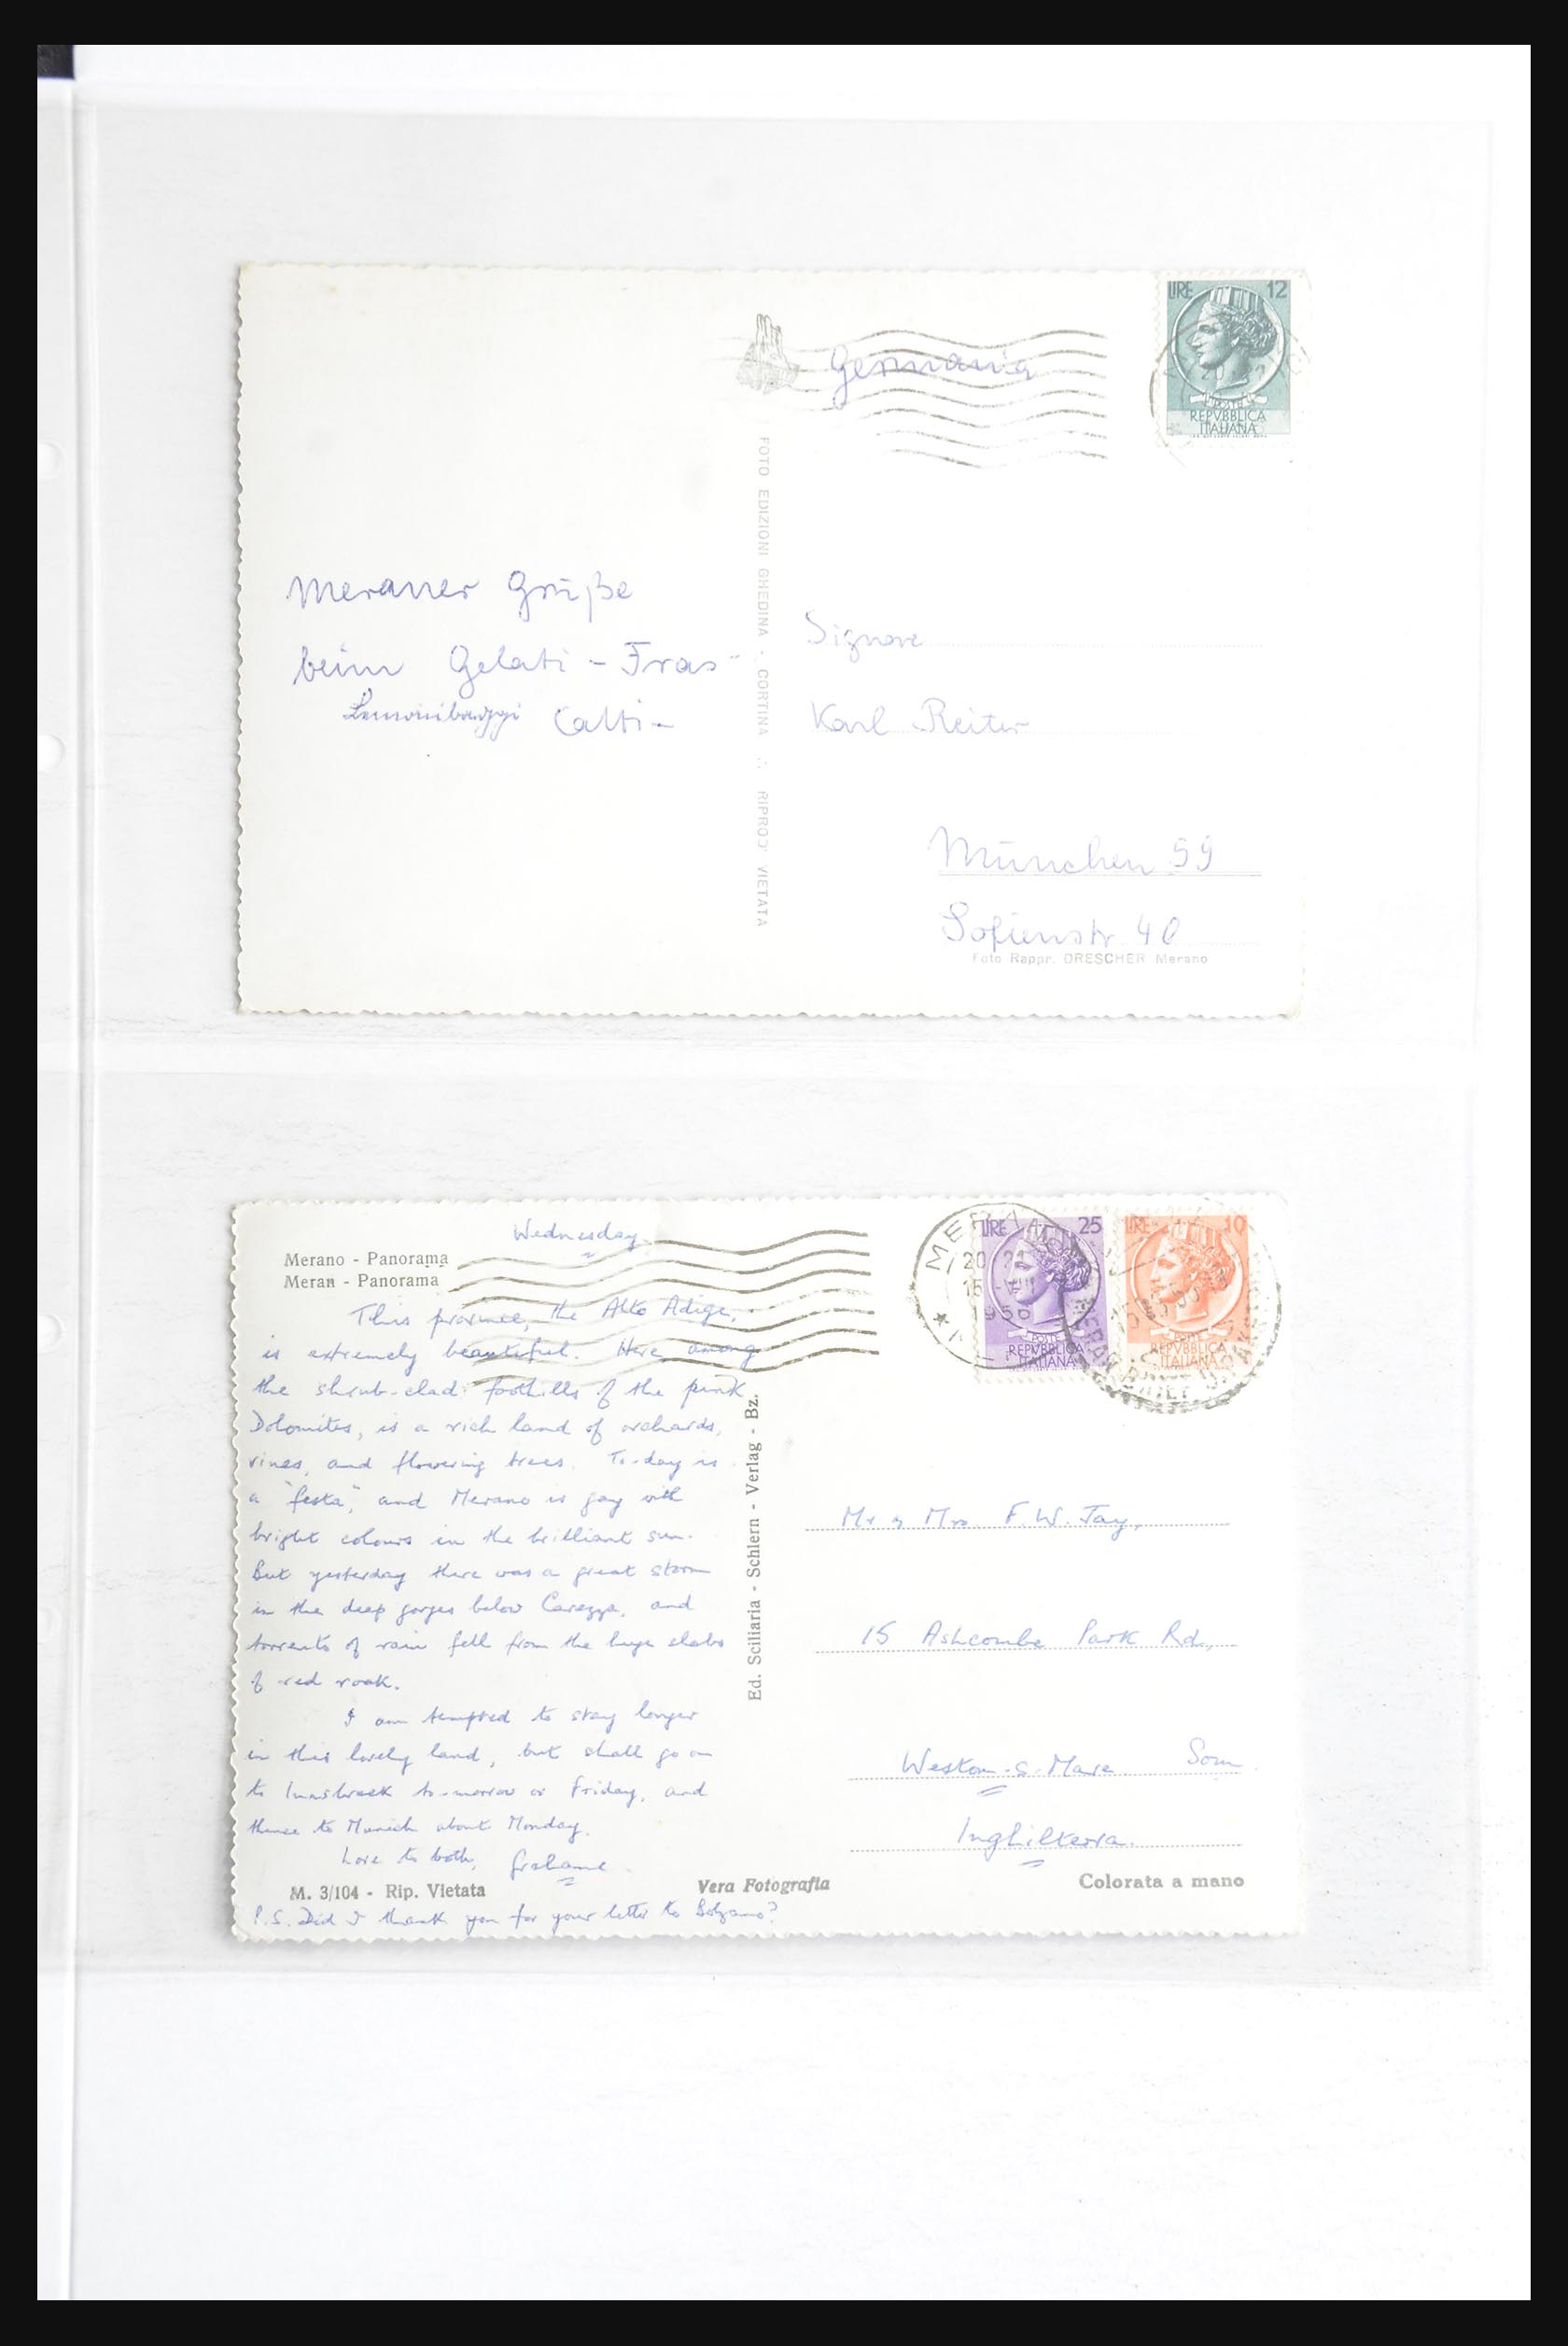 LIRE 12
Germania
POSTE
REPVBBLICA
ITALIANA
FOTO EDIZIONI GHEDINA - CORTINA ∴ RIPROD. VIETATA
Meraner Grüße
beim Gelati - Fras-
Calti-
Signore
Karl Reiter
München 59
Sofienstr. 40
Foto Rappr. DRESCHER Merano
Wednesday.
Merano - Panorama
Meran - Panorama
This province, the Alto Adige,
is extremely beautiful. Here, among
the shrub-clad foothills of the pink
Dolomites, is a rich land of orchards,
vines, and flowering trees. To-day is
a "festa", and Merano is gay with
bright colours in the brilliant sun.
But yesterday there was a great storm
in the deep gorges below Carezza, and
torrents of rain fell from the huge slabs
of red rock.
I am tempted to stay longer
in this lovely land, but shall go on
to Innsbruck to-morrow or Friday, and
thence to Munich about Monday.
Love to both, Grahame
M. 3/104 - Rip. Vietata
Vera Fotografia
Colorata a mano
P.S. Did I thank you for your letter to Bolzano?
Ed. Sciliaria - Schlern - Verlag - Bz.
LIRE 25
POSTE
REPVBBLICA
ITALIANA
LIRE 10
POSTE
REPVBBLICA
ITALIANA
Mr & Mrs. F. W. Jay,
15 Ashcombe Park Rd.,
Weston-s-Mare Som.
Inghilterra.